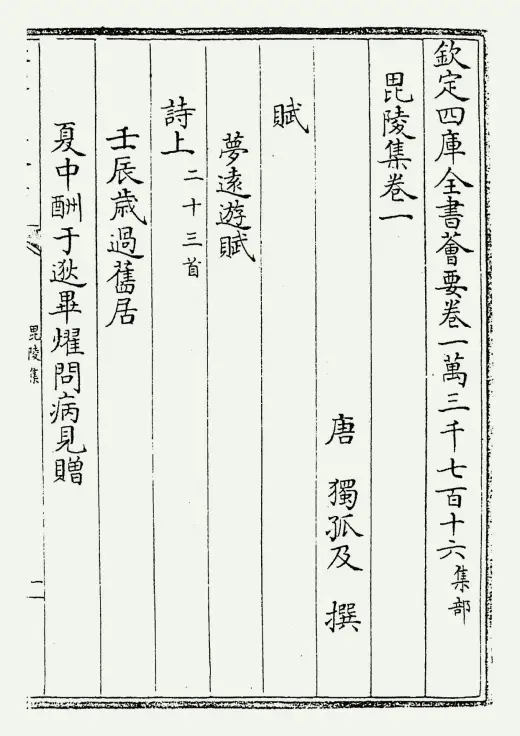 欽定四庫全書薈要卷一萬三千七百十六集部
毘陵集卷一
唐 獨孤及 撰
賦
夢遠遊賦
詩上二十三首
壬辰歲過舊居
夏中酬于逖畢燿問病見贈
毘陵集
二